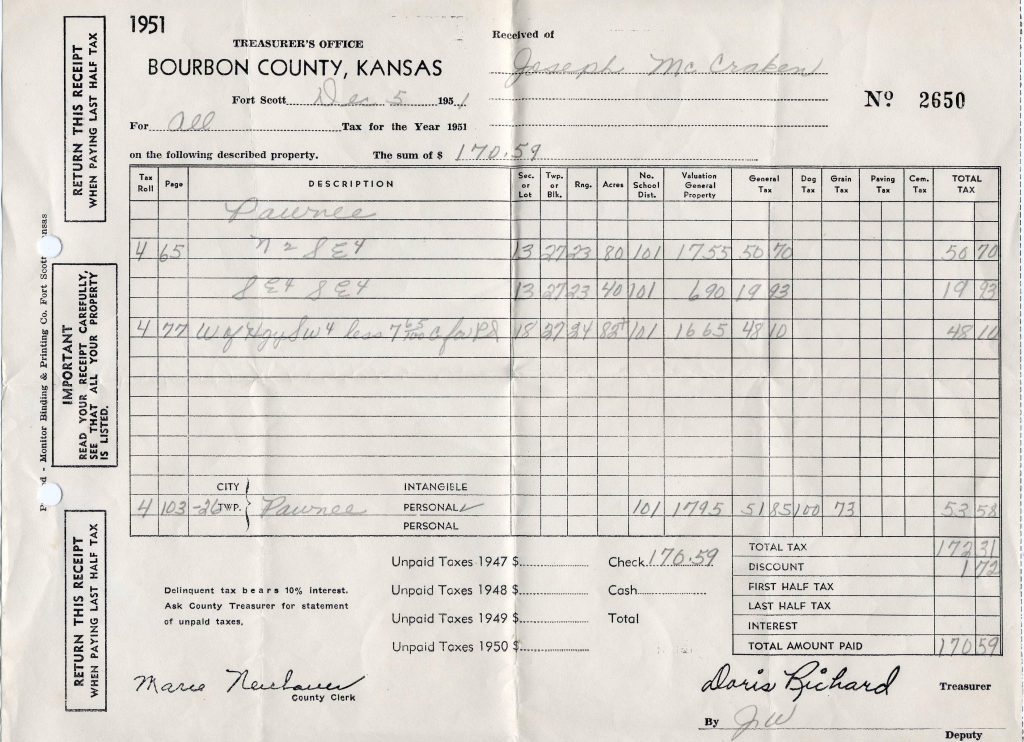 1951
TREASURER'S OFFICE
BOURBON COUNTY, KANSAS
Fort Scott Dec 5 1951
For all Tax for the Year 1951
on the following described property. The sum of $ 170.59
Received of
Joseph McCraken
No 2650
RETURN THIS RECEIPT
WHEN PAYING LAST HALF TAX
Monitor Binding & Printing Co. Fort Scott
IMPORTANT
READ YOUR RECEIPT CAREFULLY,
SEE THAT ALL YOUR PROPERTY
IS LISTED.
RETURN THIS RECEIPT
WHEN PAYING LAST HALF TAX
Tax Roll Page DESCRIPTION Sec. or Lot Twp. or Blk. Rng. Acres No. School Dist. Valuation General Property General Tax Dog Tax Grain Tax Paving Tax Cem. Tax TOTAL TAX
Pawnee
4 65 N 2 S E 4 13 27 23 80 101 1755 50 70 50 70
S E 4 S E 4 13 27 23 40 101 690 19 93 19 93
4 77 W of Hgy S W 4 less 7 18 27 24 101 1665 48 10 48 10
CITY INTANGIBLE
4 103 -26 TWP. Pawnee PERSONAL ✓ 101 1795 51 85 1 00 73 53 58
PERSONAL
Delinquent tax bears 10% interest.
Ask County Treasurer for statement
of unpaid taxes.
Unpaid Taxes 1947 $
Unpaid Taxes 1948 $
Unpaid Taxes 1949 $
Unpaid Taxes 1950 $
Check 170.59
Cash
Total
TOTAL TAX 172 31
DISCOUNT 1 72
FIRST HALF TAX
LAST HALF TAX
INTEREST
TOTAL AMOUNT PAID 170 59
Marie
County Clerk
Doris Richard Treasurer
By JW
Deputy